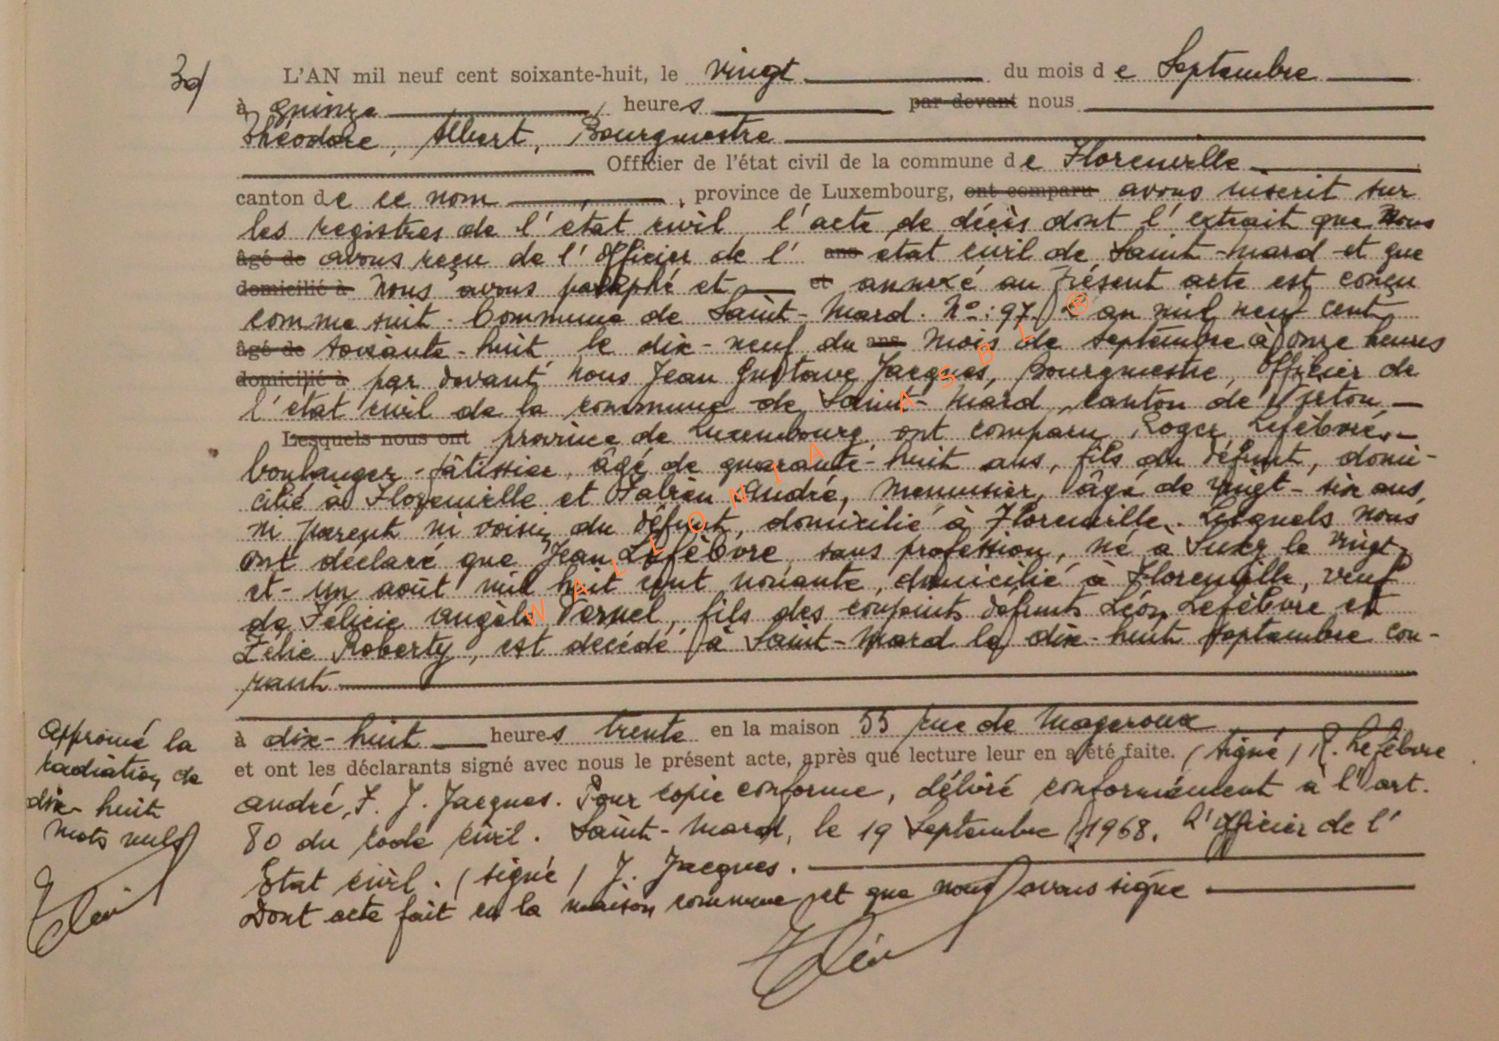 39/ L'AN mil neuf cent soixante-huit, le vingt du mois de Septembre
à quinze heures par devant nous
Théodore, Albert, Bourgmestre
Officier de l'état civil de la commune de Florenville
canton de ce nom, province de Luxembourg, ont comparu avons inscrit sur
les registres de l'état civil l'acte de décès dont l'extrait que nous
âgé de avons reçu de l'Officier de l' ans état civil de Saint-Mard et que
domicilié à nous avons paraphé et et annexé au présent acte est conçu
comme suit. Commune de Saint-Mard. N° : 97. L'an mil neuf cent
âgé de soixante-huit le dix-neuf du ans mois de septembre à onze heures
domicilié à par devant nous Jean Gustave Jacques, Bourgmestre, Officier de
l'état civil de la commune de Saint-Mard, canton de Virton
Lesquels nous ont province de Luxembourg, ont comparu Roger Lefèbvre,
boulanger-pâtissier, âgé de quarante-huit ans, fils du défunt, domi-
cilié à Florenville et Fabien André, menuisier, âgé de vingt-six ans,
ni parent ni voisin du défunt, domicilié à Florenville. Lesquels nous
ont déclaré que Jean Lefèbvre, sans profession, né à Suxy le vingt
et-un août mil huit cent nonante, domicilié à Florenville, veuf
de Félicie Angèle Pernel, fils des conjoints défunts Léon Lefèbvre et
Zélie Roberty, est décédé à Saint-Mard le dix-huit septembre cou-
rant
à dix-huit heures trente en la maison 55 rue de Mageroux
et ont les déclarants signé avec nous le présent acte, après que lecture leur en a été faite. (signé) R. Lefèbvre
André, F. J. Jacques. Pour copie conforme, délivré conformément à l'art.
80 du code civil. Saint-Mard, le 19 Septembre 1968. L'Officier de l'
Etat civil. (signé) J. Jacques.
Dont acte fait en la maison commune et que nous avons signé
Approuvé la
radiation de
dix-huit
mots nuls
WALLONIA ASBL ®